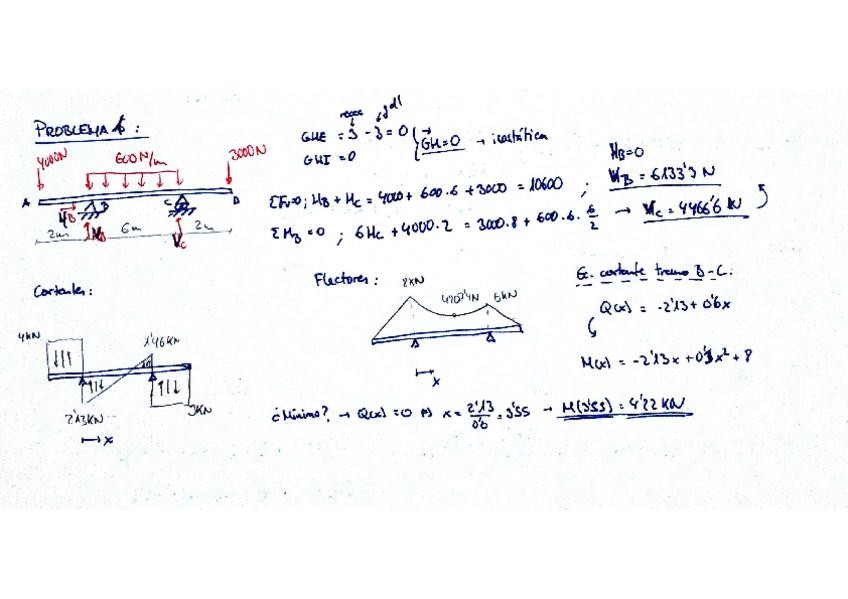 PROBLEMA 6:
4000N
600N/m
3000N
A
B
C
D
H_B
V_B
V_C
2m
6m
2m
GHE = 3 - 3 = 0
gdl
GHI = 0
GH = 0 → isostática
ΣFv=0; H_B + H_C = 4000 + 600·6 + 3000 = 10600 ;
ΣM_B = 0 ; 6H_C + 4000·2 = 3000·8 + 600·6·6/2 → V_C = 4466'6 N
H_B=0
V_B = 6133'3 N
Cortantes:
4kN
1'46kN
2'13kN
3kN
x
Flectores:
8kN
4207'4N
6kN
x
Ec. cortante tramo B-C:
Q(x) = -2'13 + 0'6x
M(x) = -2'13x + 0'3x² + 8
¿Mínimo? → Q(x) = 0 x = 2'13/0'6 = 3'55 → M(3'55) = 4'22 kN